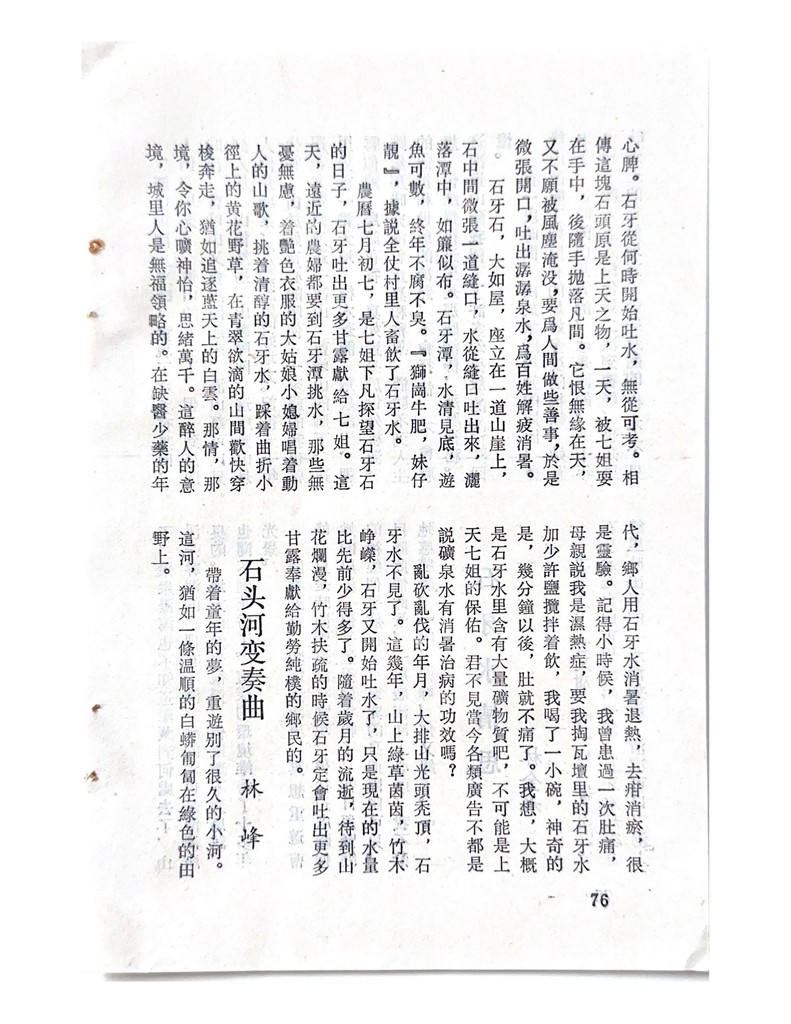 心脾。石牙從何時開始吐水，無從可考。相
傳這塊石頭原是上天之物，一天，被七姐耍
在手中，後隨手抛落凡間。它恨無緣在天，
又不願被風塵淹没，要爲人間做些善事，於是
微張開口，吐出潺潺泉水，爲百姓解疲消暑。
石牙石，大如屋，座立在一道山崖上，
石中間微張一道縫口，水從縫口吐出來，灑
落潭中，如簾似布。石牙潭，水清見底，遊
魚可數，終年不腐不臭。『獅崗牛肥，妹仔
靚』，據説全仗村里人畜飲了石牙水。
農曆七月初七，是七姐下凡探望石牙石
的日子，石牙吐出更多甘露獻給七姐。這
天，遠近的農婦都要到石牙潭挑水，那些無
憂無慮，着艷色衣服的大姑娘小媳婦唱着動
人的山歌，挑着清醇的石牙水，踩着曲折小
徑上的黄花野草，在青翠欲滴的山間歡快穿
梭奔走，猶如追逐藍天上的白雲。那情，那
境，令你心曠神怡，思緒萬千。這醉人的意
境，城里人是無福領略的。在缺醫少藥的年
代，鄉人用石牙水消暑退熱，去疳消瘀，很
是靈驗。記得小時候，我曾患過一次肚痛，
母親説我是濕熱症，要我掏瓦壇里的石牙水
加少許鹽攪拌着飲，我喝了一小碗，神奇的
是，幾分鐘以後，肚就不痛了。我想，大概
是石牙水里含有大量礦物質吧，不可能是上
天七姐的保佑。君不見當今各類廣告不都是
説礦泉水有消暑治病的功效嗎？
亂砍亂伐的年月，大排山光頭秃頂，石
牙水不見了。這幾年，山上綠草茵茵，竹木
崢嶸，石牙又開始吐水了，只是現在的水量
比先前少得多了。隨着歲月的流逝，待到山
花爛漫，竹木扶疏的時候石牙定會吐出更多
甘露奉獻給勤勞純樸的鄉民的。
石头河变奏曲
林峰
帶着童年的夢，重遊別了很久的小河。
這河，猶如一條溫順的白蟒匍匐在綠色的田
野上。
76